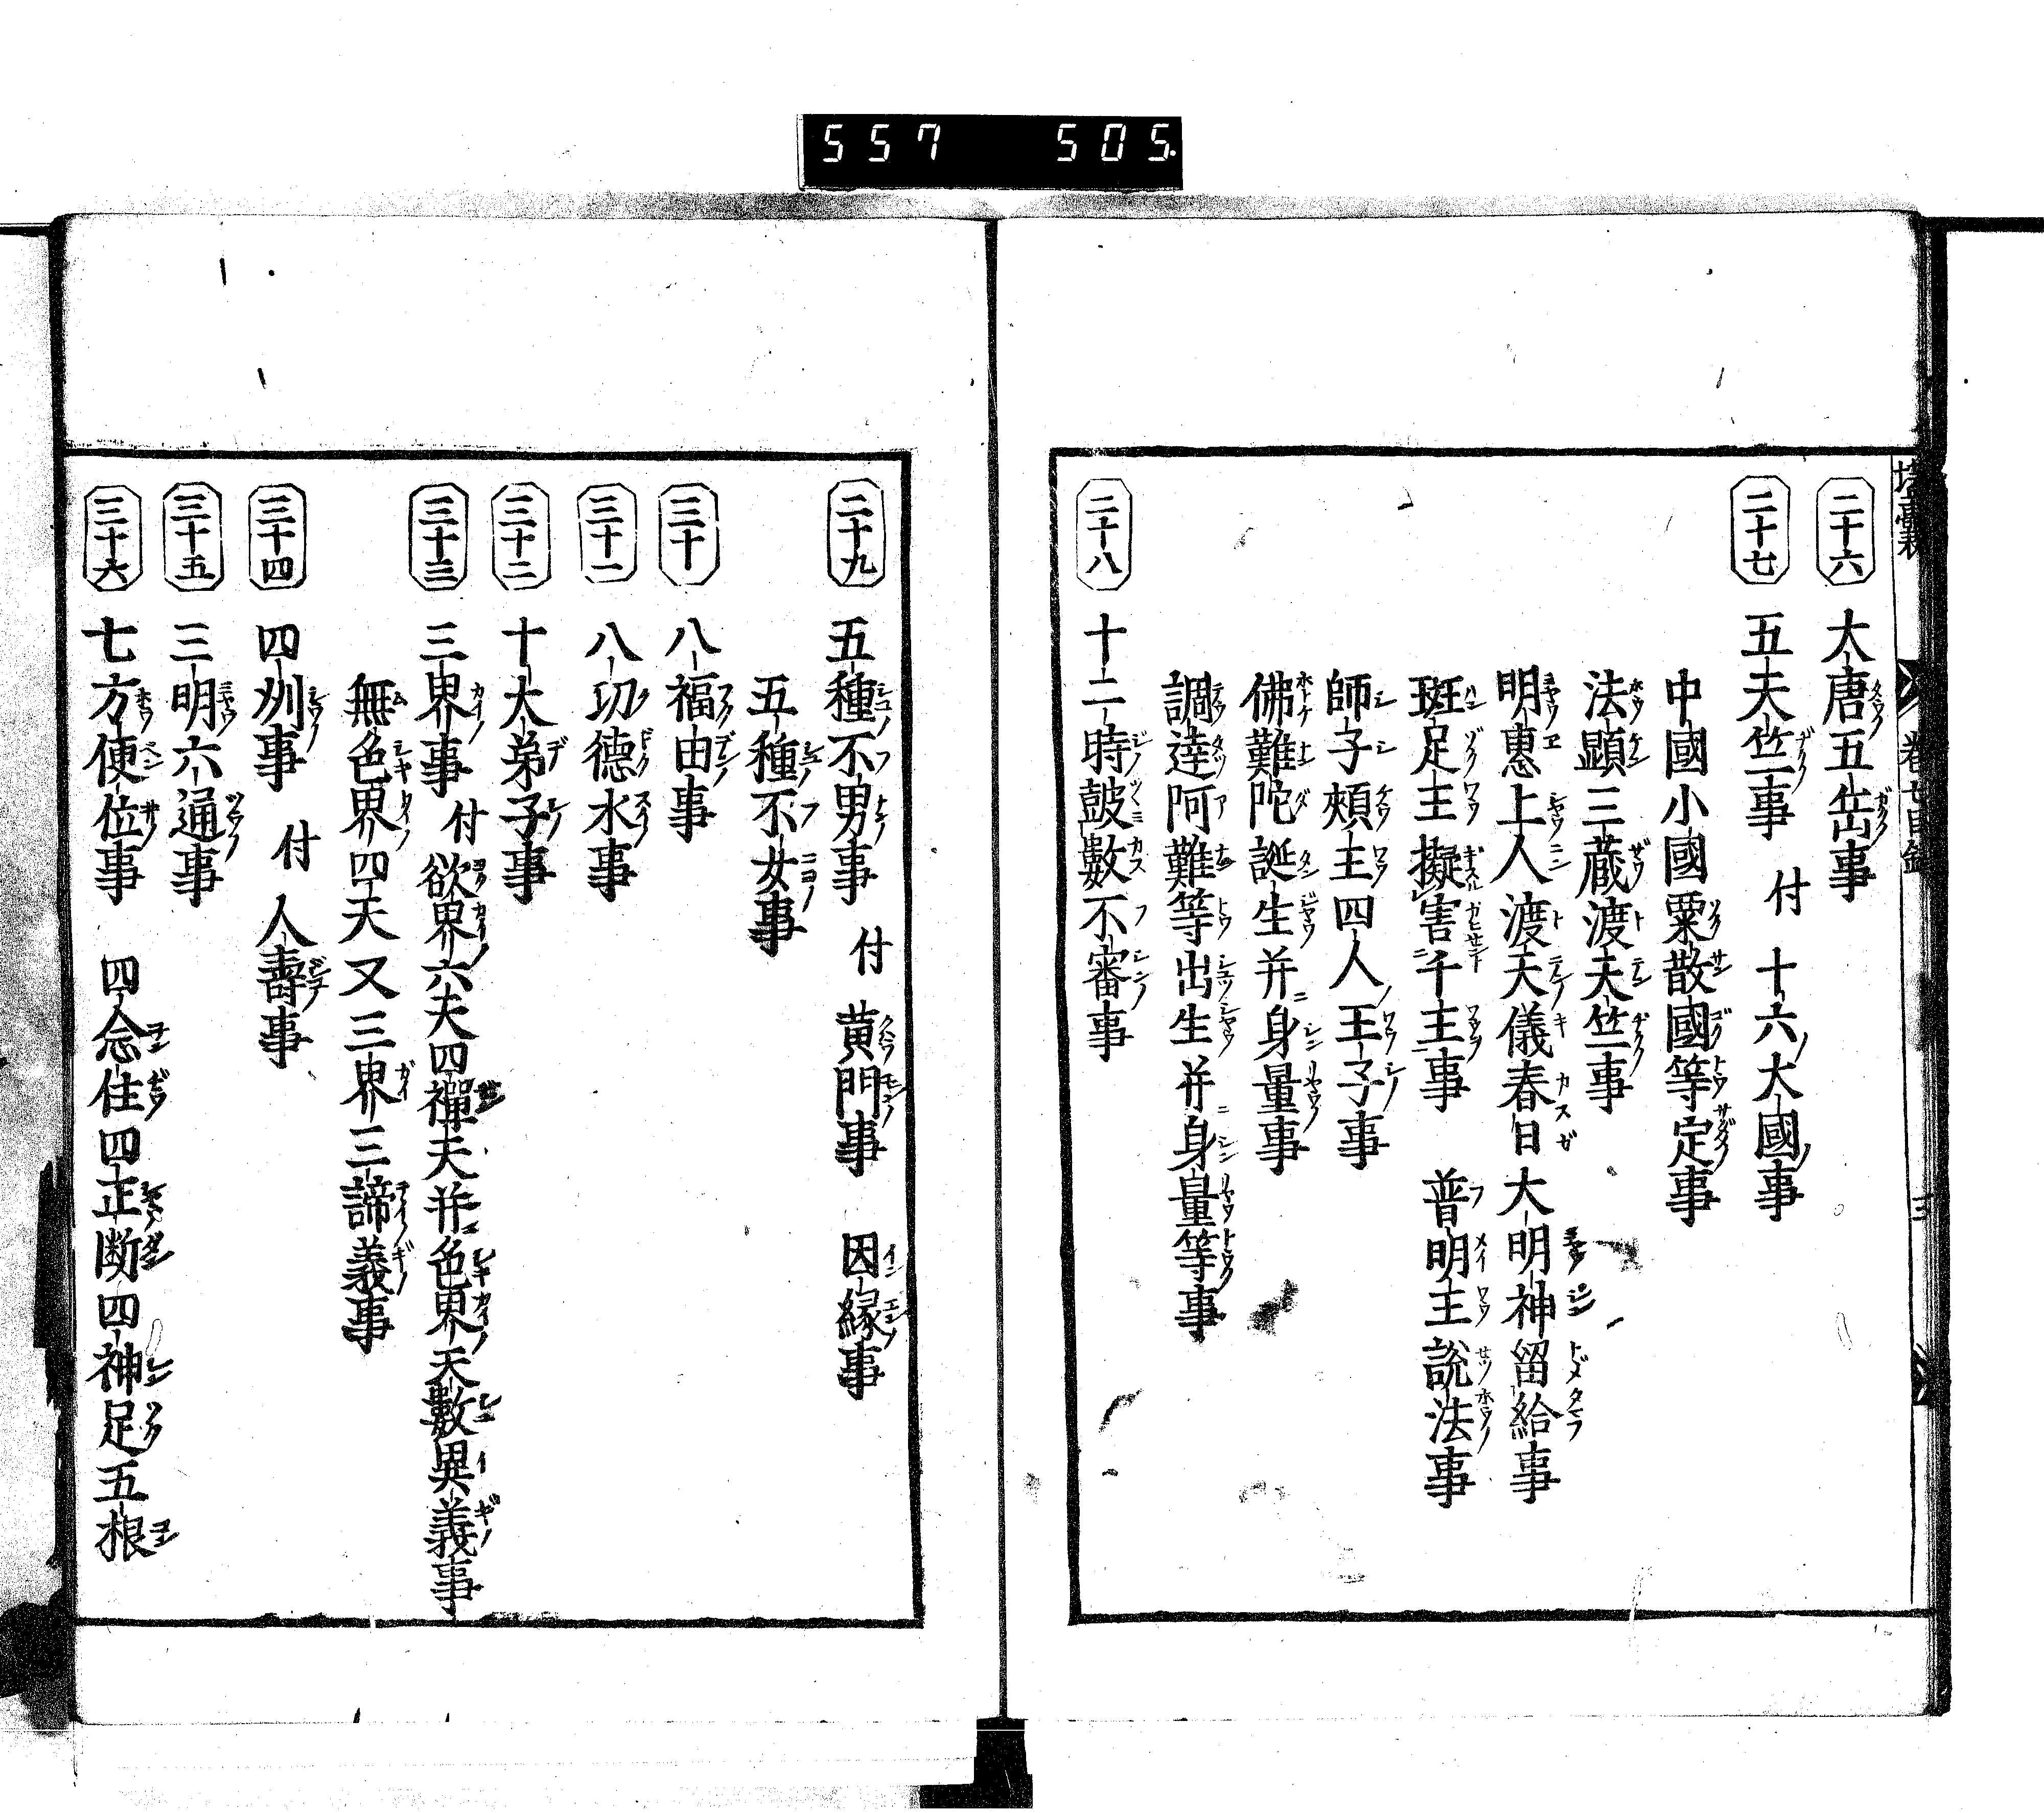 557 505
二十六 大唐五岳事
二十七 五天竺事 付 十六大國事
中國小國粟散國等定事
法顕三蔵渡天竺事
明惠上人渡天儀春日大明神留給事
斑足王擬害千王事 普明王説法事
師子頰王四人王子事
佛難陀誕生并身量事
調達阿難等出生并身量等事
二十八 十二時皷數不審事
二十九 五種不男事 付 黄門事 因縁事
五種不女事
三十 八福田事
三十一 八功德水事
三十二 十大弟子事
三十三 三界事 付欲界六天四禪天并色界天數異義事
無色界四天又三界三諦義事
三十四 四州事 付 人壽事
三十五 三明六通事
三十六 七方便位事 四念住四正断四神足五根